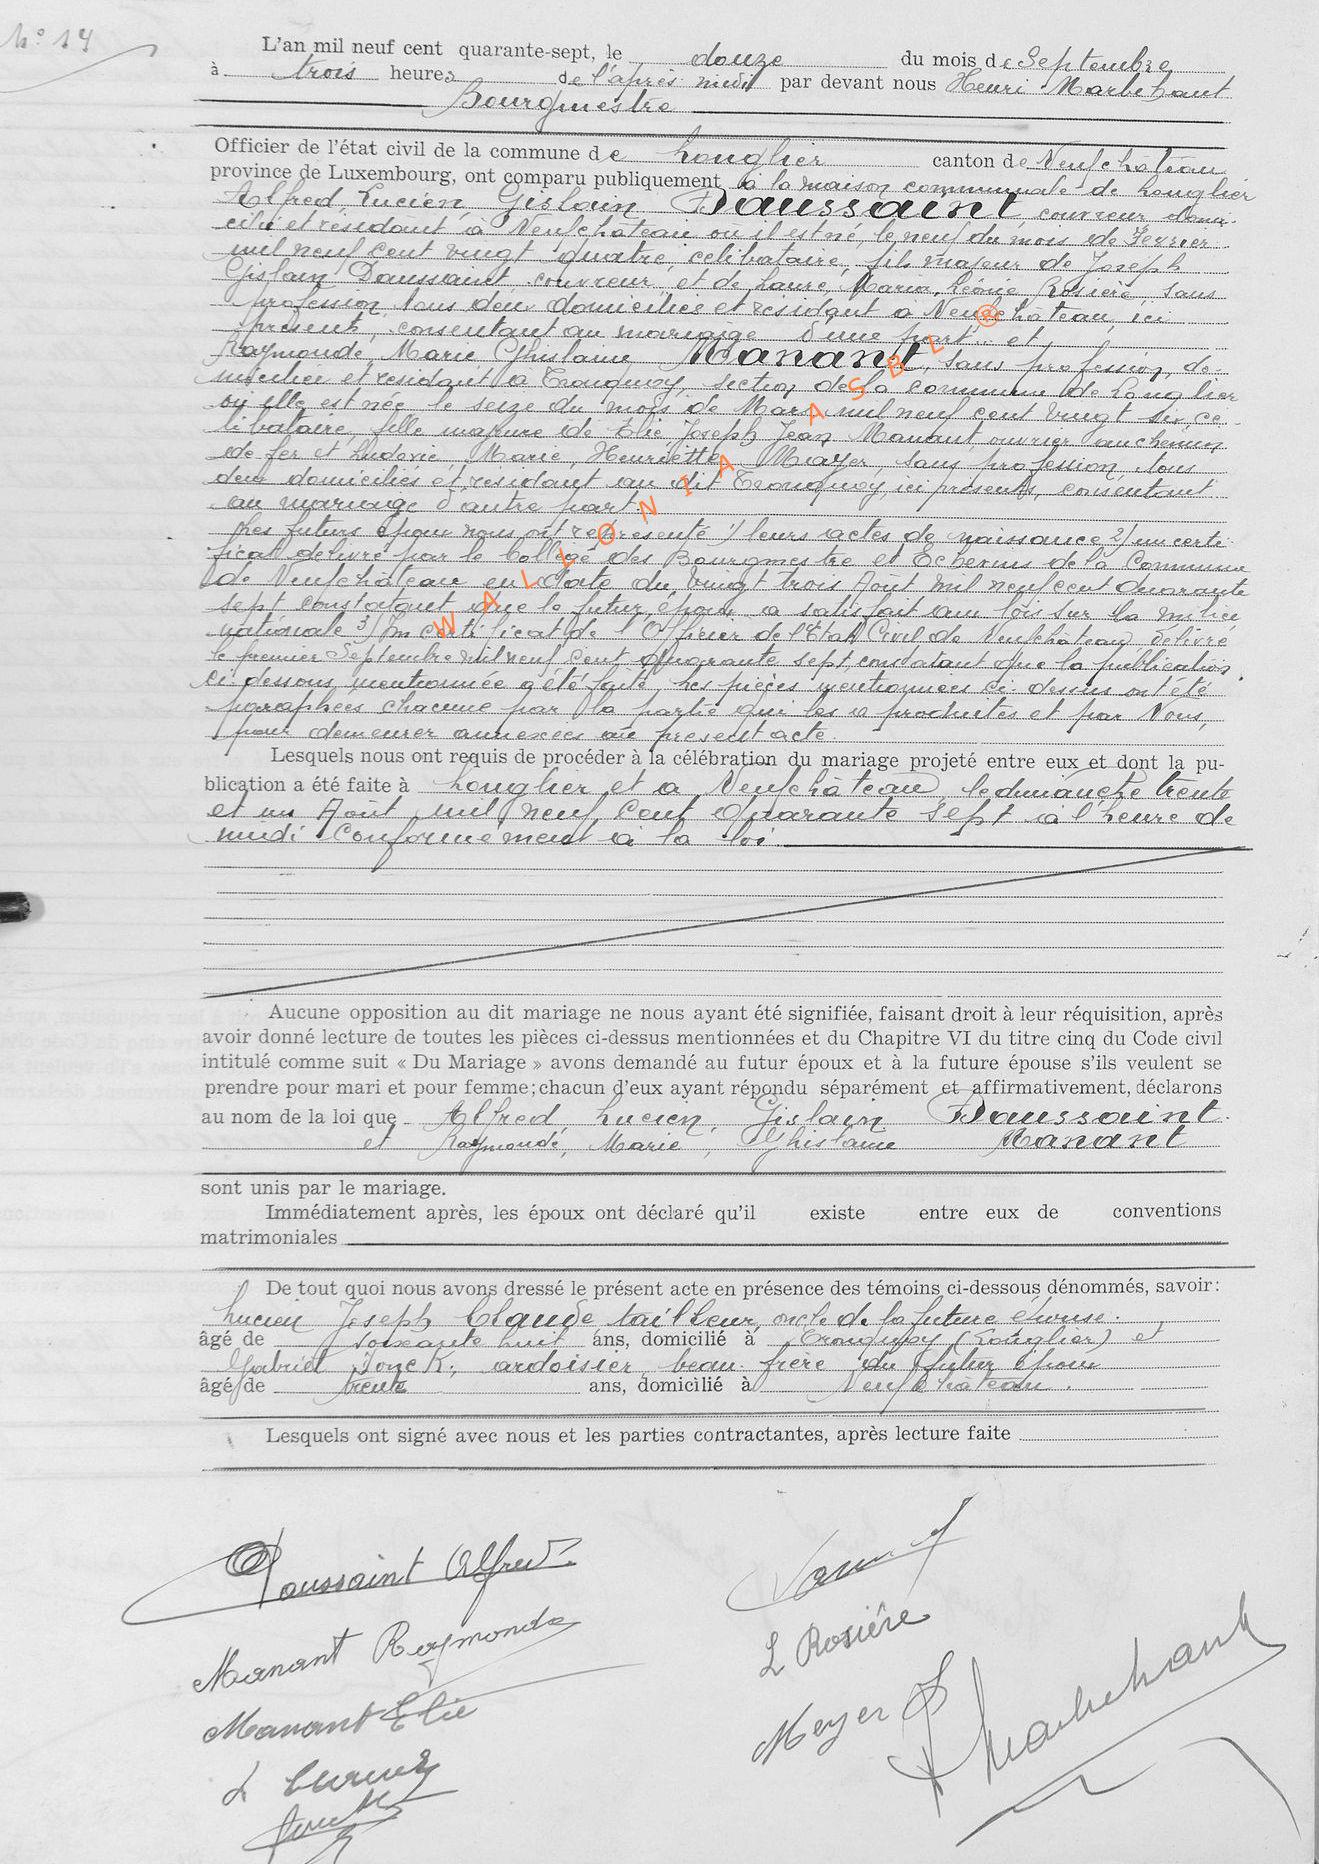 N° 14
L'an mil neuf cent quarante-sept, le douze du mois de Septembre
à trois heures de l'après midi par devant nous Henri Marbehant
Bourgmestre
Officier de l'état civil de la commune de Longlier canton de Neufchâteau
province de Luxembourg, ont comparu publiquement à la maison communale de Longlier
Alfred, Lucien, Gislain Daussaint, couvreur domi-
cilié et résidant à Neufchâteau ou il est né, le neuf du mois de Fevrier
mil neuf cent vingt quatre, celibataire, fils majeur de Joseph
Gislain Daussaint, couvreur, et de Laure, Maria, Léonie Rosière, sans
profession, tous deux domiciliés et résidant à Neufchâteau, ici
présents, consentant au mariage d'une part. et
Raymonde, Marie Ghislaine Manant, sans profession, do-
miciliée et residant à Tronquoy, section de la commune de Longlier
ou elle est née le seize du mois de Mars mil neuf cent vingt six ce-
libataire, fille majeure de Elie Joseph Jean Manant, ouvrier au chemin
de fer et Ludovie, Marie, Henriette Mayer, sans profession tous
deux domiciliés et residant au dit Tronquoy, ici présents, consentant
au mariage d'autre part.
Les futurs époux nous ont représenté 1) leurs actes de naissance 2) un certi-
ficat délivré par le Collège des Bourgmestre et Echevins de la Commune
de Neufchâteau en date du vingt trois Août mil neuf cent quarante
sept constatant que le futur époux a satisfait aux lois sur la milice
nationale 3) Un certificat de l'Officier de l'Etat Civil de Neufchâteau délivré
le premier Septembre mil neuf cent quarante sept constatant que la publication
ci dessous mentionnée a été faite. Les pièces mentionnées ci dessus ont été
paraphées chacune par la partie qui les a produites et par Nous,
pour demeurer annexées au présent acte.
Lesquels nous ont requis de procéder à la célébration du mariage projeté entre eux et dont la pu-
blication a été faite à Longlier et a Neufchâteau, le dimanche trente
et un Août mil neuf cent Quarante sept à l'heure de
midi Conformément à la loi.
Aucune opposition au dit mariage ne nous ayant été signifiée, faisant droit à leur réquisition, après
avoir donné lecture de toutes les pièces ci-dessus mentionnées et du Chapitre VI du titre cinq du Code civil
intitulé comme suit « Du Mariage » avons demandé au futur époux et à la future épouse s'ils veulent se
prendre pour mari et pour femme; chacun d'eux ayant répondu séparément et affirmativement, déclarons
au nom de la loi que Alfred, Lucien, Gislain Daussaint
et Raymonde, Marie, Ghislaine Manant
sont unis par le mariage.
Immédiatement après, les époux ont déclaré qu'il existe entre eux de conventions
matrimoniales
De tout quoi nous avons dressé le présent acte en présence des témoins ci-dessous dénommés, savoir:
Lucien Joseph Claude tailleur, oncle de la future épouse.
âgé de soixante huit ans, domicilié à Tronquoy (Longlier) et
Gabriel Jonck, ardoisier, beau frère du futur époux
âgé de trente ans, domicilié à Neufchâteau.
Lesquels ont signé avec nous et les parties contractantes, après lecture faite
Daussaint Alfred
Manant Raymonde
L Rosière
Manant Elie
Meyer L
H Marbehant
WALLONIA ASBL ®